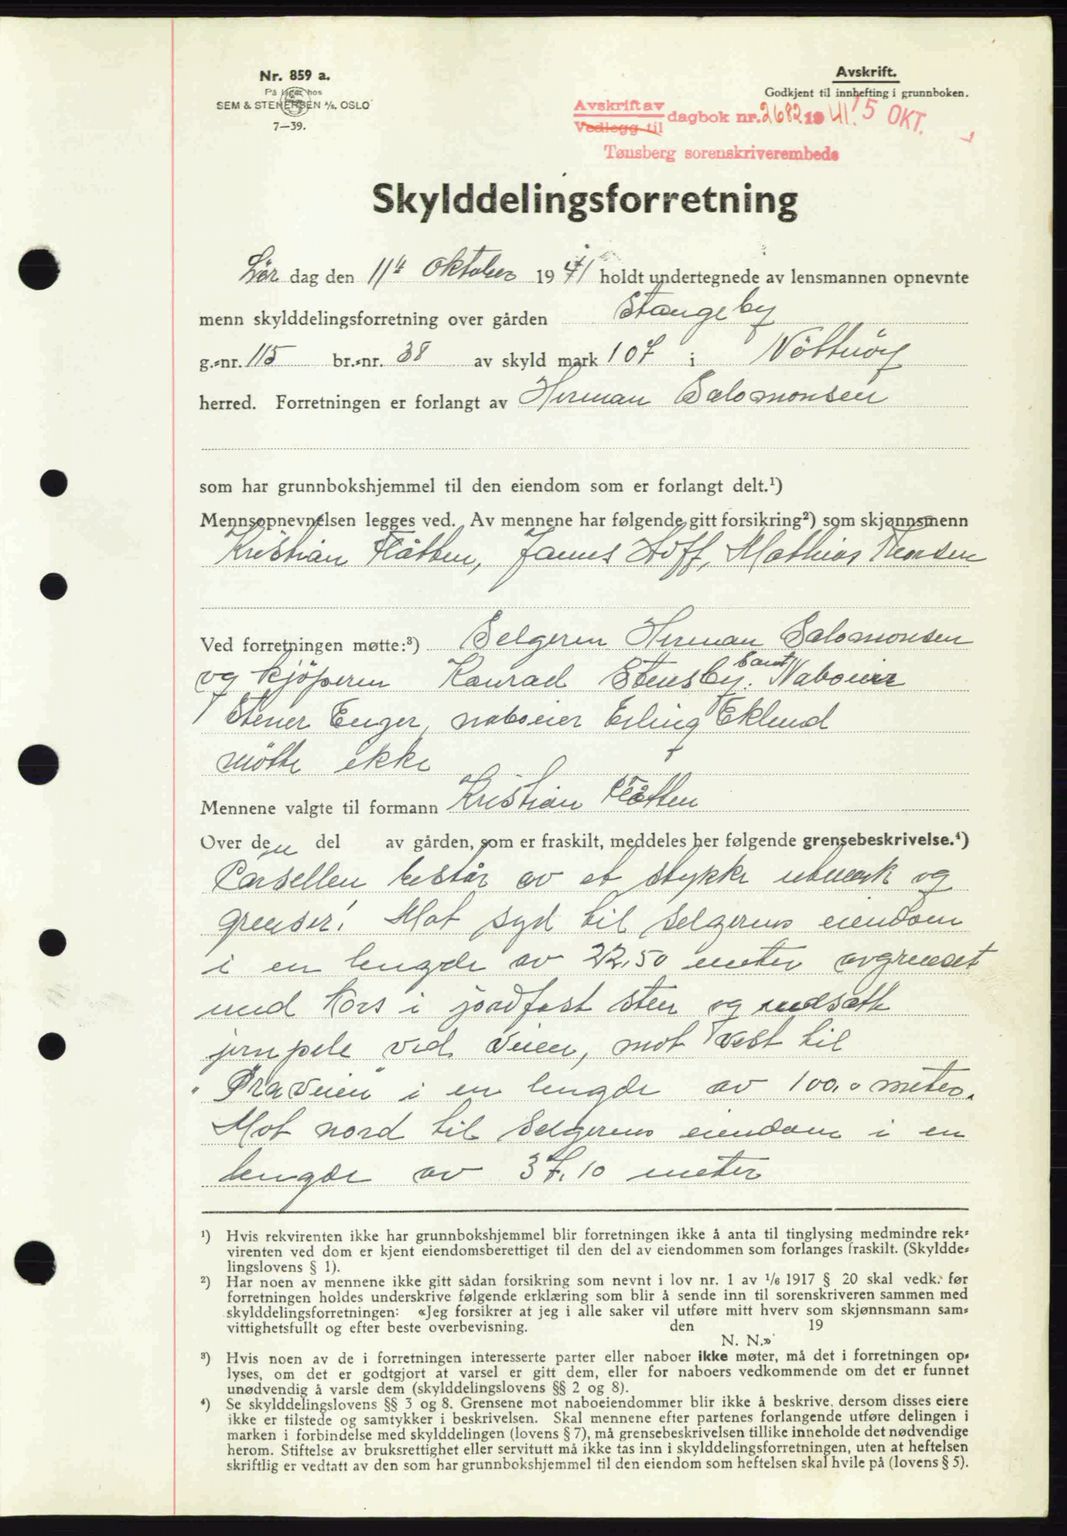 Nr. 859 a.
På lager hos
SEM & STENERSEN A/S, OSLO
7—39.
Avskrift.
Godkjent til innhefting i grunnboken.
Avskrift av
Vedlegg til
dagbok nr. 2682 1941. 15 OKT.
Tønsberg sorenskriverembede
Skylddelingsforretning
Lør dag den 11te oktober 1941 holdt undertegnede av lensmannen opnevnte
menn skylddelingsforretning over gården Stangeby
g.-nr. 115 br.-nr. 38 av skyld mark 1 07 i Nöttröy
herred. Forretningen er forlangt av Herman Salomonsen
som har grunnbokshjemmel til den eiendom som er forlangt delt.¹)
Mennsopnevnelsen legges ved. Av mennene har følgende gitt forsikring²) som skjønnsmenn
Kristian Flåtten, James Hoff, Mathias Hansen
Ved forretningen møtte:³) Selgeren Herman Salomonsen
og kjöperen Konrad Stensby. samt Naboeier
Stener Enger, naboeier Erling Eklund
mötte ikke
Mennene valgte til formann Kristian Flåtten
Over den del av gården, som er fraskilt, meddeles her følgende grensebeskrivelse.⁴)
Parsellen består av et stykke utmark og
grenser! Mot syd til selgerens eiendom
i en lengde av 22,50 meter avgrenset
med kors i jordfast sten og nedsatt
jernpele ved veien, mot vest til
"Öraveien" i en lengde av 100,0 meter.
Mot nord til Selgerens eiendom i en
lengde av 37,10 meter
¹) Hvis rekvirenten ikke har grunnbokshjemmel blir forretningen ikke å anta til tinglysing medmindre rek-
virenten ved dom er kjent eiendomsberettiget til den del av eiendommen som forlanges fraskilt. (Skyldde-
lingslovens § 1).
²) Har noen av mennene ikke gitt sådan forsikring som nevnt i lov nr. 1 av 1/6 1917 § 20 skal vedk. før
forretningen holdes underskrive følgende erklæring som blir å sende inn til sorenskriveren sammen med
skylddelingsforretningen: «Jeg forsikrer at jeg i alle saker vil utføre mitt hverv som skjønnsmann sam-
vittighetsfullt og efter beste overbevisning. den 19
N. N.»
³) Hvis noen av de i forretningen interesserte parter eller naboer ikke møter, må det i forretningen op-
lyses, om det er godtgjort at varsel er gitt dem, eller for naboers vedkommende om det er funnet
unødvendig å varsle dem (skylddelingslovens §§ 2 og 8).
⁴) Se skylddelingslovens §§ 3 og 8. Grensene mot naboeiendommer blir ikke å beskrive, dersom disses eiere
ikke er tilstede og samtykker i beskrivelsen. Skal mennene efter partenes forlangende utføre delingen i
marken i forbindelse med skylddelingen (lovens § 7), må grensebeskrivelsen tillike inneholde det nødvendige
herom. Stiftelse av bruksrettighet eller servitutt må ikke tas inn i skylddelingsforretningen, uten at heftelsen
skriftlig er vedtatt av den som har grunnbokshjemmel til den eiendom som heftelsen skal hvile på (lovens § 5).